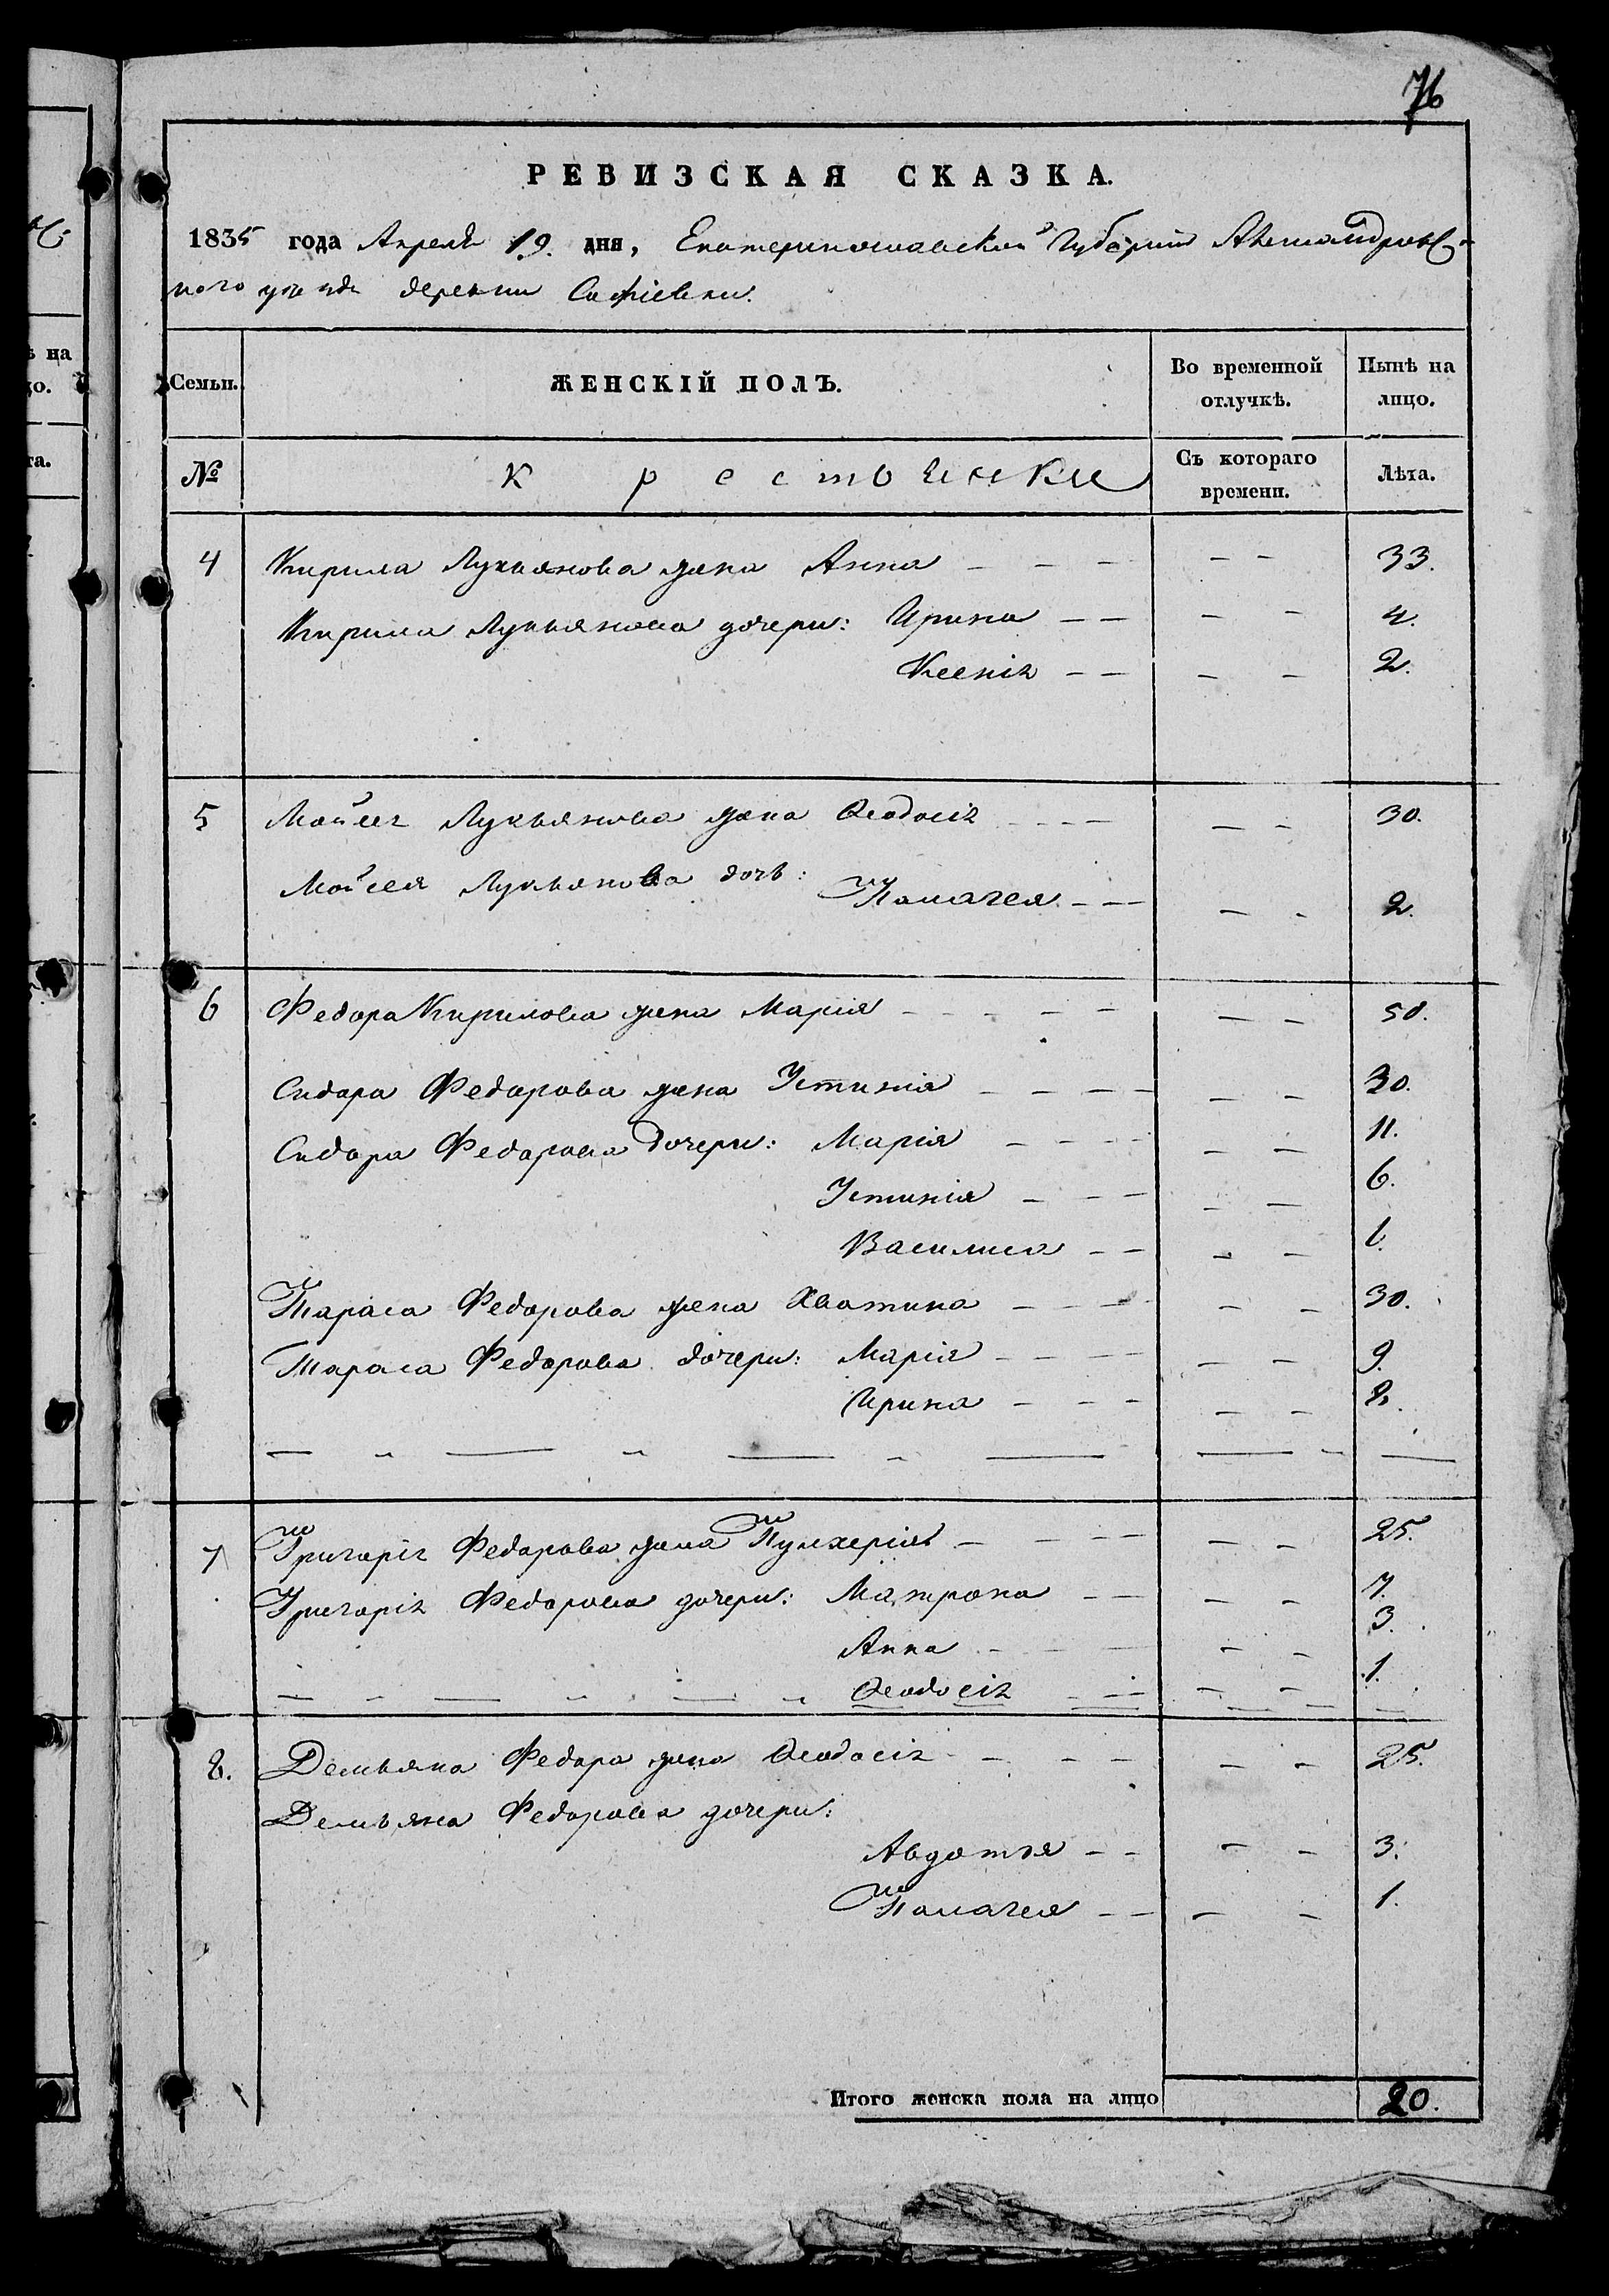 76
РЕВИЗСКАЯ СКАЗКА.
1835 года Апреля 19. дня, Екатеринославской Губернии Александровс-
кого уезда деревни Софіевки.
Семьи. ЖЕНСКІЙ ПОЛЪ. Во временной отлучкѣ. Нынѣ на лицо.
№ Крестьянки Съ котораго времени. Лѣта.
4 Кирила Лукьянова жена Анна — — — — — 33.
Кирила Лукьянова дочери: Ирина — — — — 4.
Ксенія — — — — 2.
5 Мойсея Лукьянова жена Феодосія — — — — — 30.
Мойсея Лукьянова дочь: Палагея — — — — 2.
6 Федора Кирилова жена Марія — — — — — — — 50.
Сидора Федорова жена Устинія — — — — — — 30.
Сидора Федорова дочери: Марія — — — — — 11.
Устинія — — — — — 6.
Василиса — — — — 1.
Тараса Федорова жена Хватина — — — — — 30.
Тараса Федорова дочери: Марія — — — — — — 9.
Ирина — — — — — 8.
7 Григорія Федорова жена Пулхерія — — — — — — 25.
Григорія Федорова дочери: Матрона — — — — 7.
Анна — — — — — 3.
Феодосія — — — — 1.
8. Демьяна Федора жена Феодосія — — — — — — 25.
Демьяна Федорова дочери:
Авдотья — — — — 3.
Палагея — — — — 1.
Итого женска пола на лицо 20.